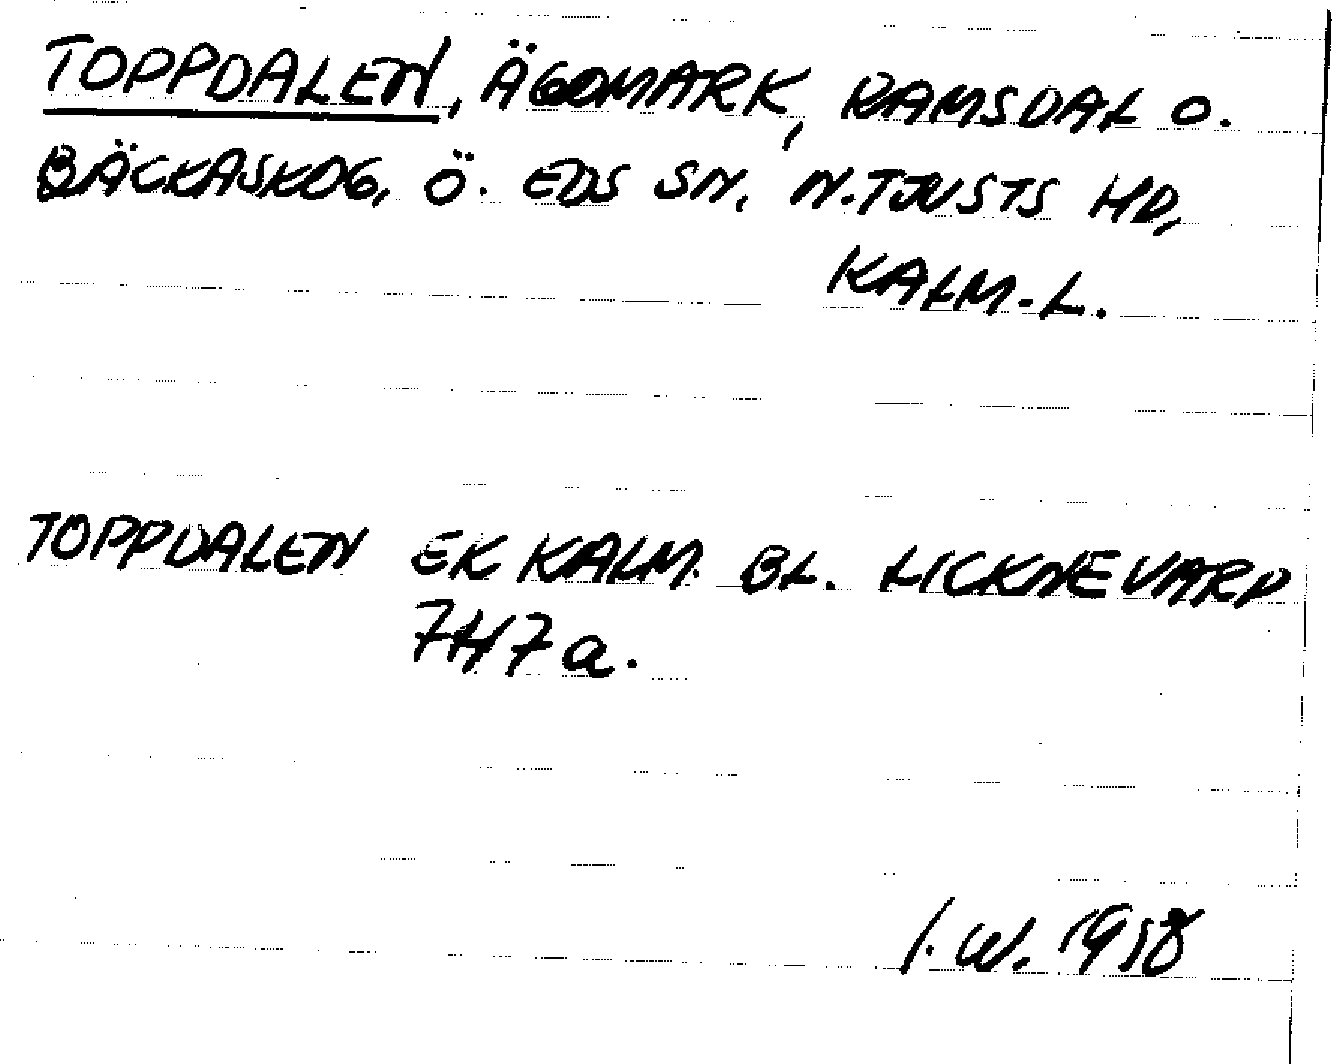 TOPPDALEN, ÄGOMARK, RAMSDAL O.
BÄCKASKOG, Ö. EDS SN, N.TJUSTS HD,
KALM.L.
TOPPDALEN EK KALM. BL. LICKNEVARP
7H7a.
I.W. 1958